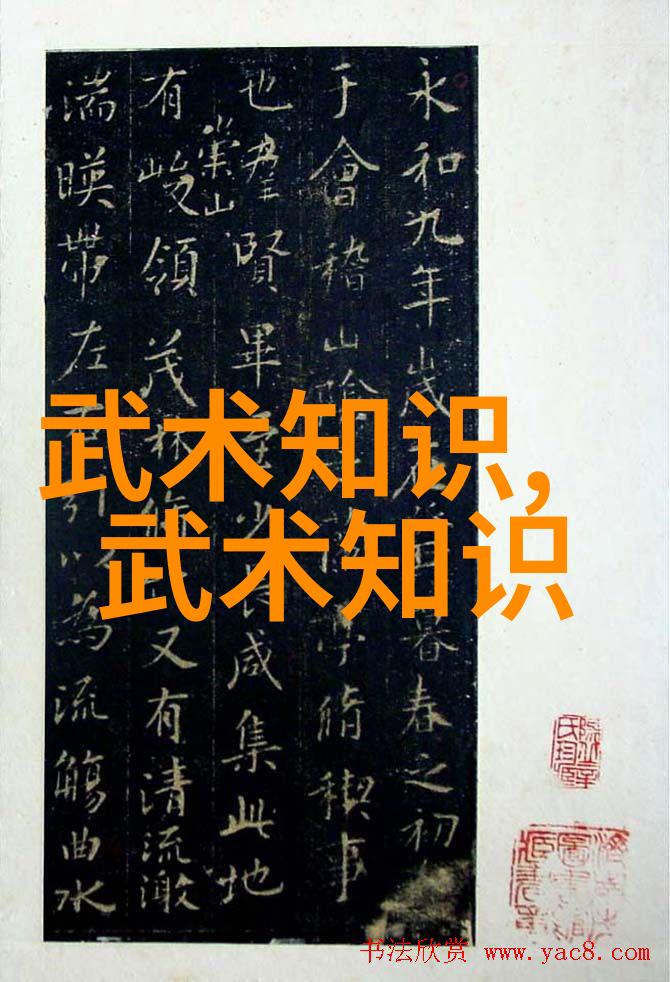 永和九年歲在暮春之初
于會稽山陰亭脩禊事
也羣賢畢至少長咸集此地
有崇山峻領茂林脩又有清流激
湍暎帶左右引以為流觴曲水
武术知识,
武术知识
书法欣赏 www.yac8.com